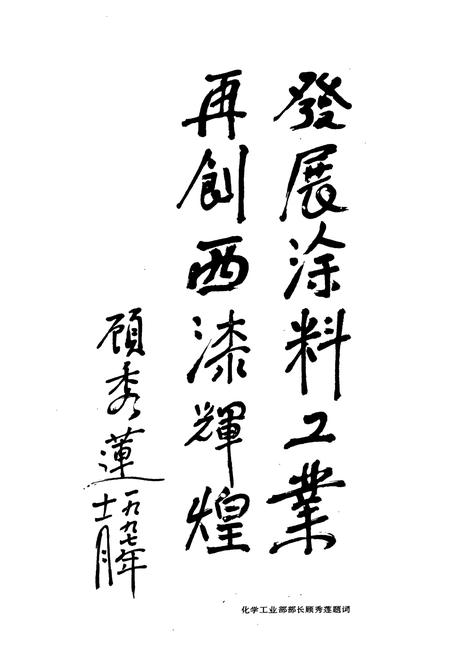 發展涂料工業
再創西漆輝煌
顾秀蓮
一九九七年
十一月
化学工业部部长顾秀莲题词